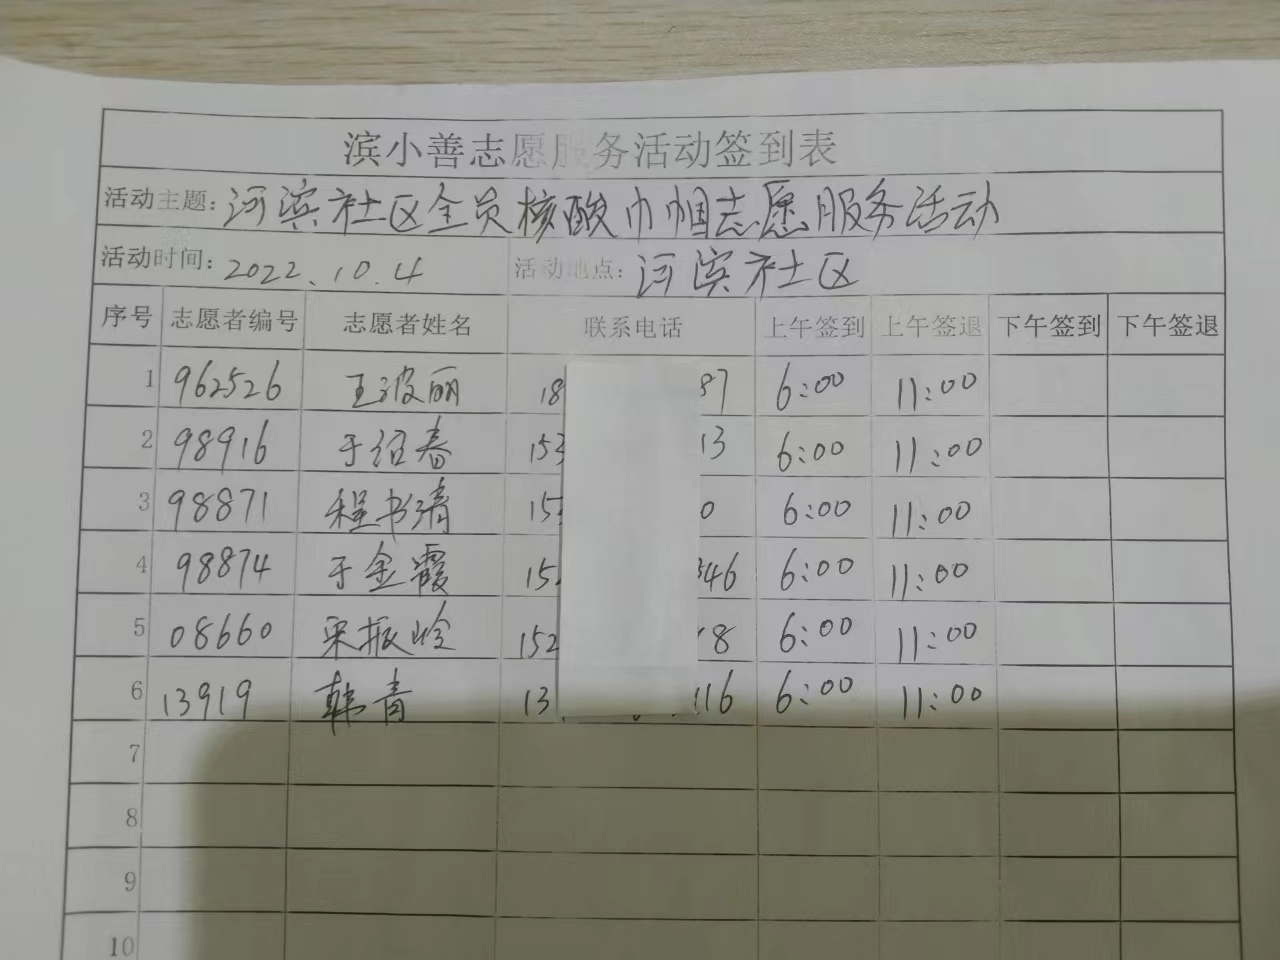 滨小善志愿服务活动签到表
活动主题: 河滨社区全员核酸巾帼志愿服务活动
活动时间: 2022.10.4 活动地点: 河滨社区
序号 志愿者编号 志愿者姓名 联系电话 上午签到 上午签退 下午签到 下午签退
1 962526 王波丽 18 87 6:00 11:00
2 98916 于绍春 153 13 6:00 11:00
3 98871 程书清 15 0 6:00 11:00
4 98874 于金霞 15 346 6:00 11:00
5 08660 宋振岭 152 8 6:00 11:00
6 13919 韩青 13 116 6:00 11:00
7
8
9
10